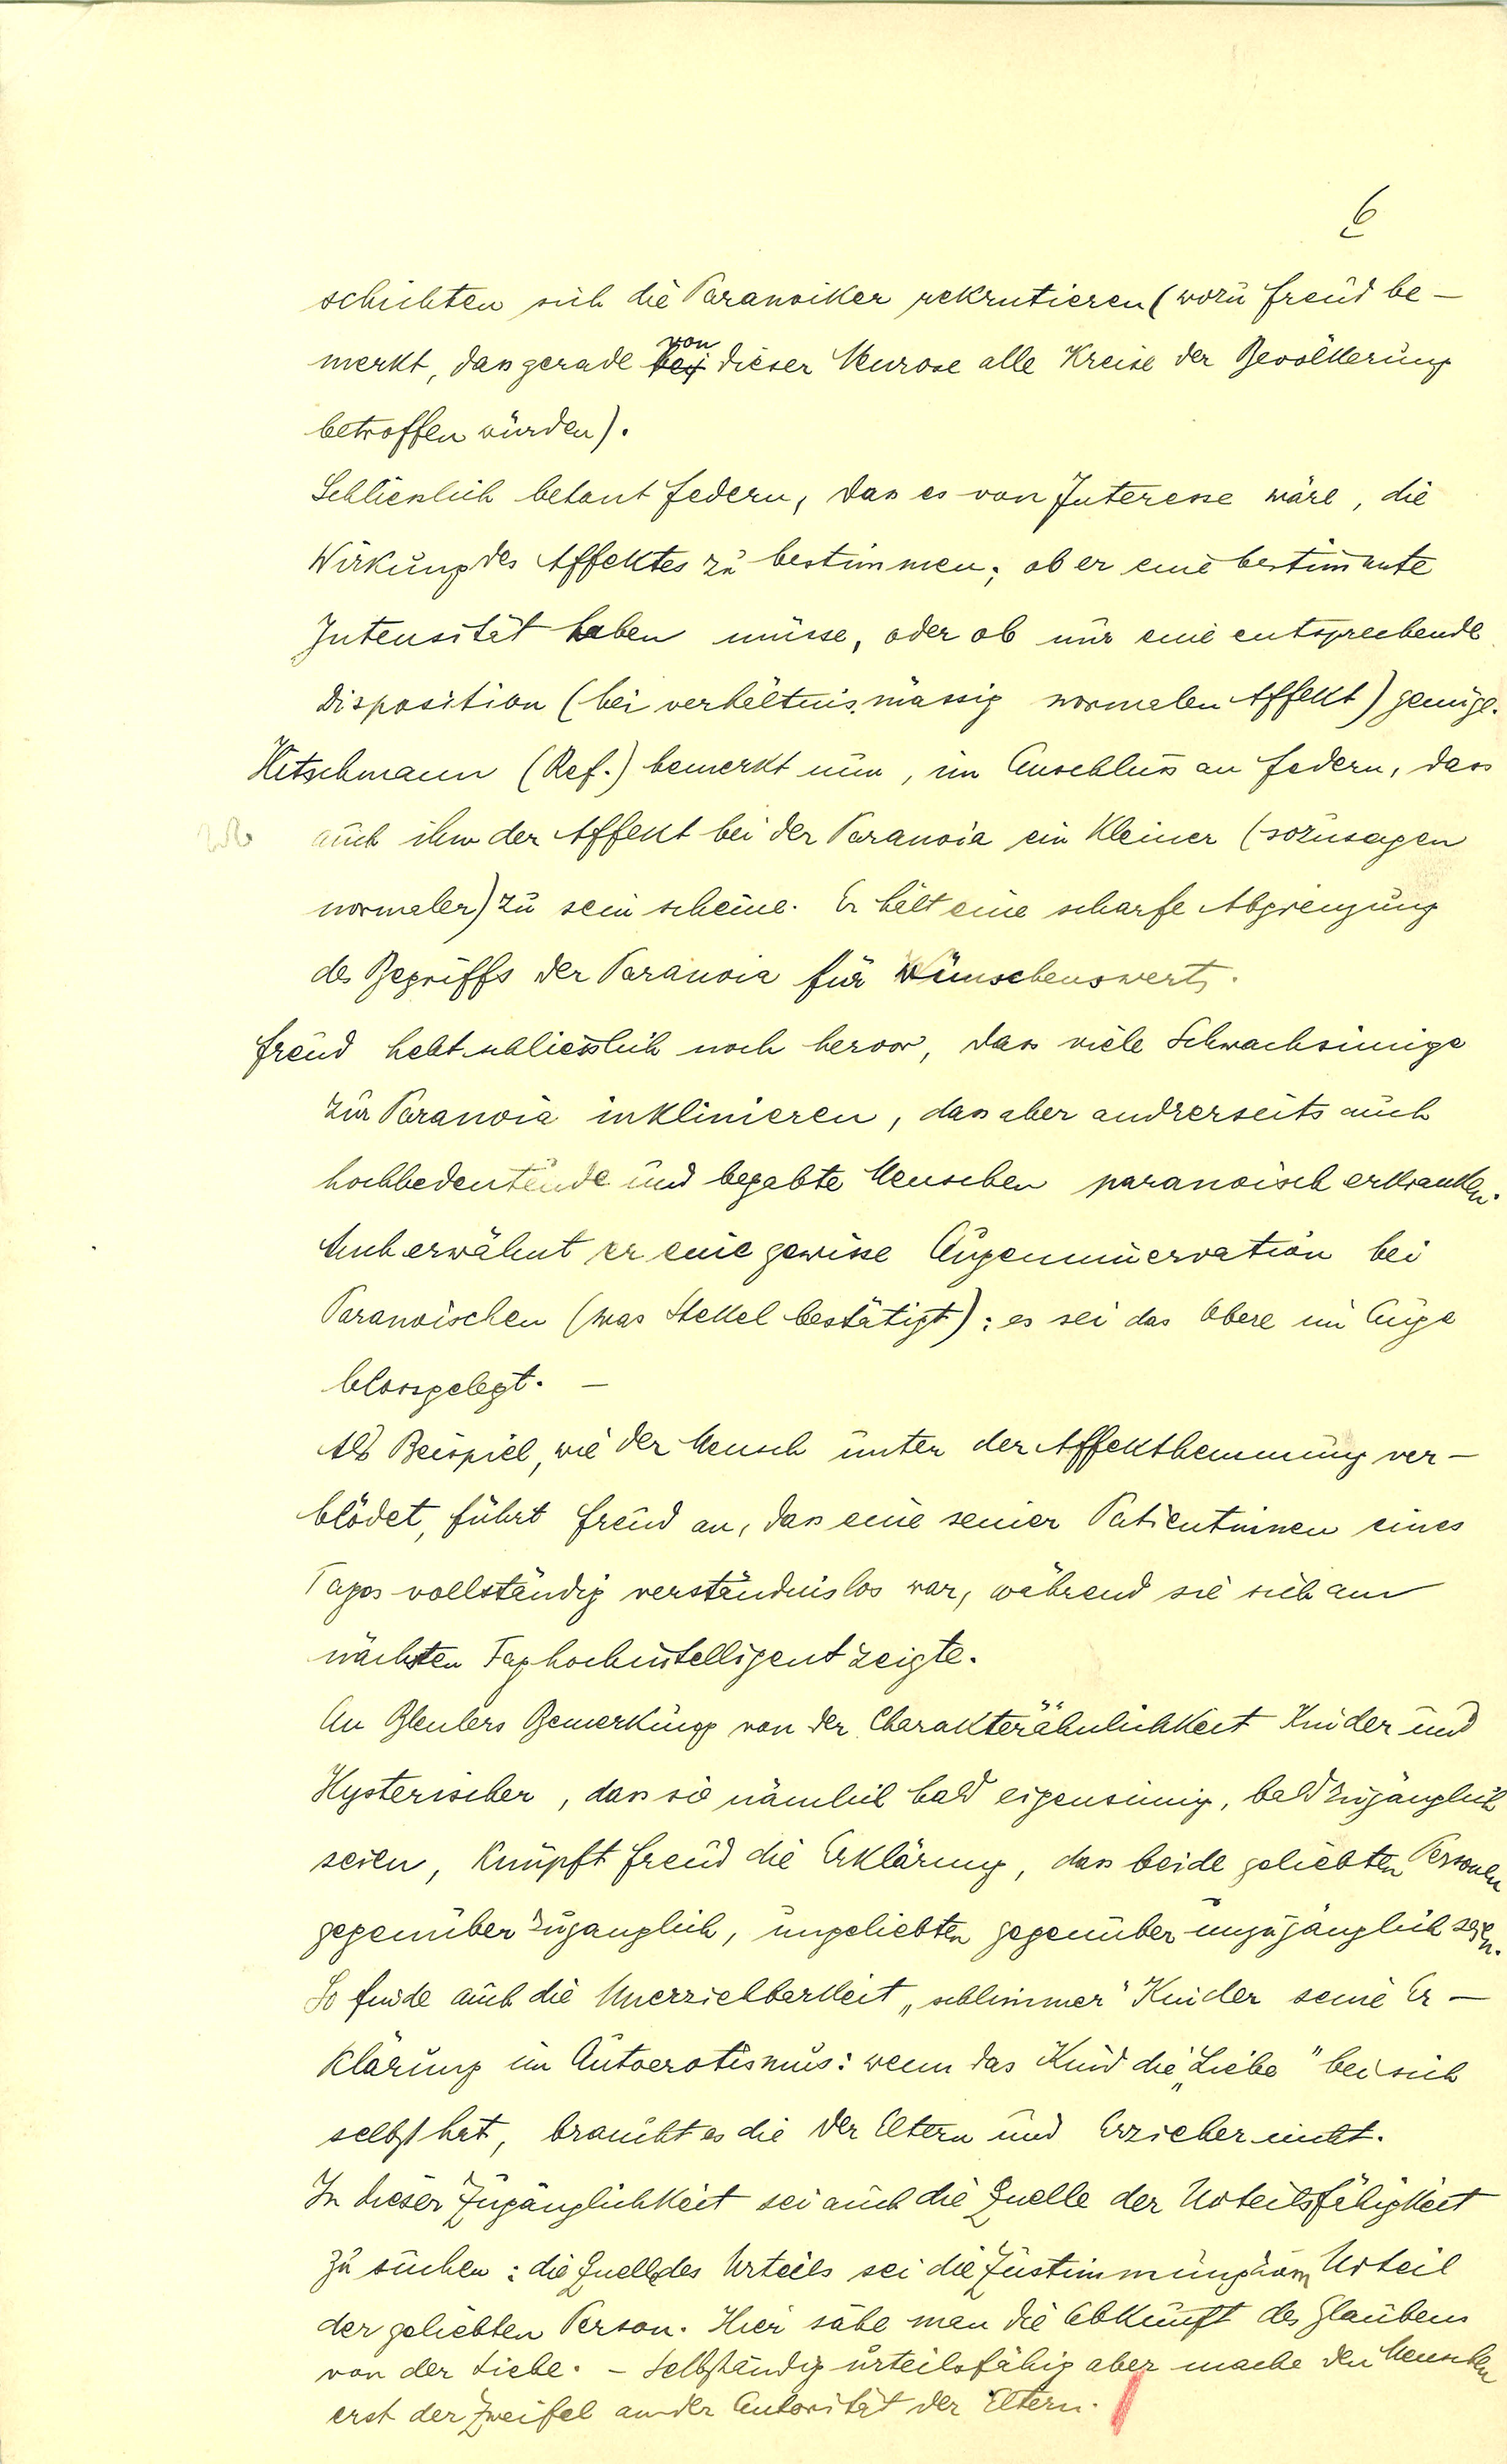 6
schichten sich die Paranoiker rekrutieren (wozu Freud be-
merkt, dass gerade bei von dieser Neurose alle Kreise der Bevölkerung
betroffen würden).
Schliesslich betont Federn, dass es von Interesse wäre, die
Wirkung des Affektes zu bestimmen; ob er eine bestimmte
Intensität haben müsse, oder ob nur eine entsprechende
Disposition (bei verhältnismässig normalen Affekt) genüge.
Hitschmann (Ref.) bemerkt nun, im Anschluss an Federn, dass
auch ihm der Affekt bei der Paranoia ein kleiner (sozusagen
normaler) zu sein scheine. Er hält eine scharfe Abgrenzung
des Begriffs der Paranoia für wünschenswert.
Freud hebt schliesslich noch hervor, dass viele Schwachsinnige
zur Paranoia inklinieren, dass aber andrerseits auch
hochbedeutende und begabte Menschen paranoisch erkranken.
Auch erwähnt er eine gewisse Augeninnervation bei
Paranoischen (was Stekel bestätigt); es sei das Obere im Auge
blossgelegt. —
Als Beispiel, wie der Mensch unter der Affekthemmung ver-
blödet, führt Freud an, dass eine seiner Patientinnen eines
Tages vollständig verständnislos war, während sie sich am
nächsten Tag hochintelligent zeigte.
An Bleulers Bemerkung von der Charakterähnlichkeit Kinder und
Hysterischer, dass sie nämlich bald eigensinnig, bald zugänglich
seien, knüpft Freud die Erklärung, dass beide geliebten Personen
gegenüber zugänglich, ungeliebten gegenüber unzugänglich seien.
So finde auch die Unerziehbarkeit „schlimmer" Kinder seine Er-
klärung im Autoerotismus: wenn das Kind die „Liebe" bei sich
selbst hat, braucht es die der Eltern und Erzieher nicht.
In dieser Zugänglichkeit sei auch die Quelle der Urteilsfähigkeit
zu suchen: die Quelle des Urteils sei die Zustimmung zum Urteil
der geliebten Person. Hier sähe man die Abkunft des Glaubens
von der Liebe. - Selbständig urteilsfähig aber mache den Menschen
erst der Zweifel an der Autorität der Eltern.